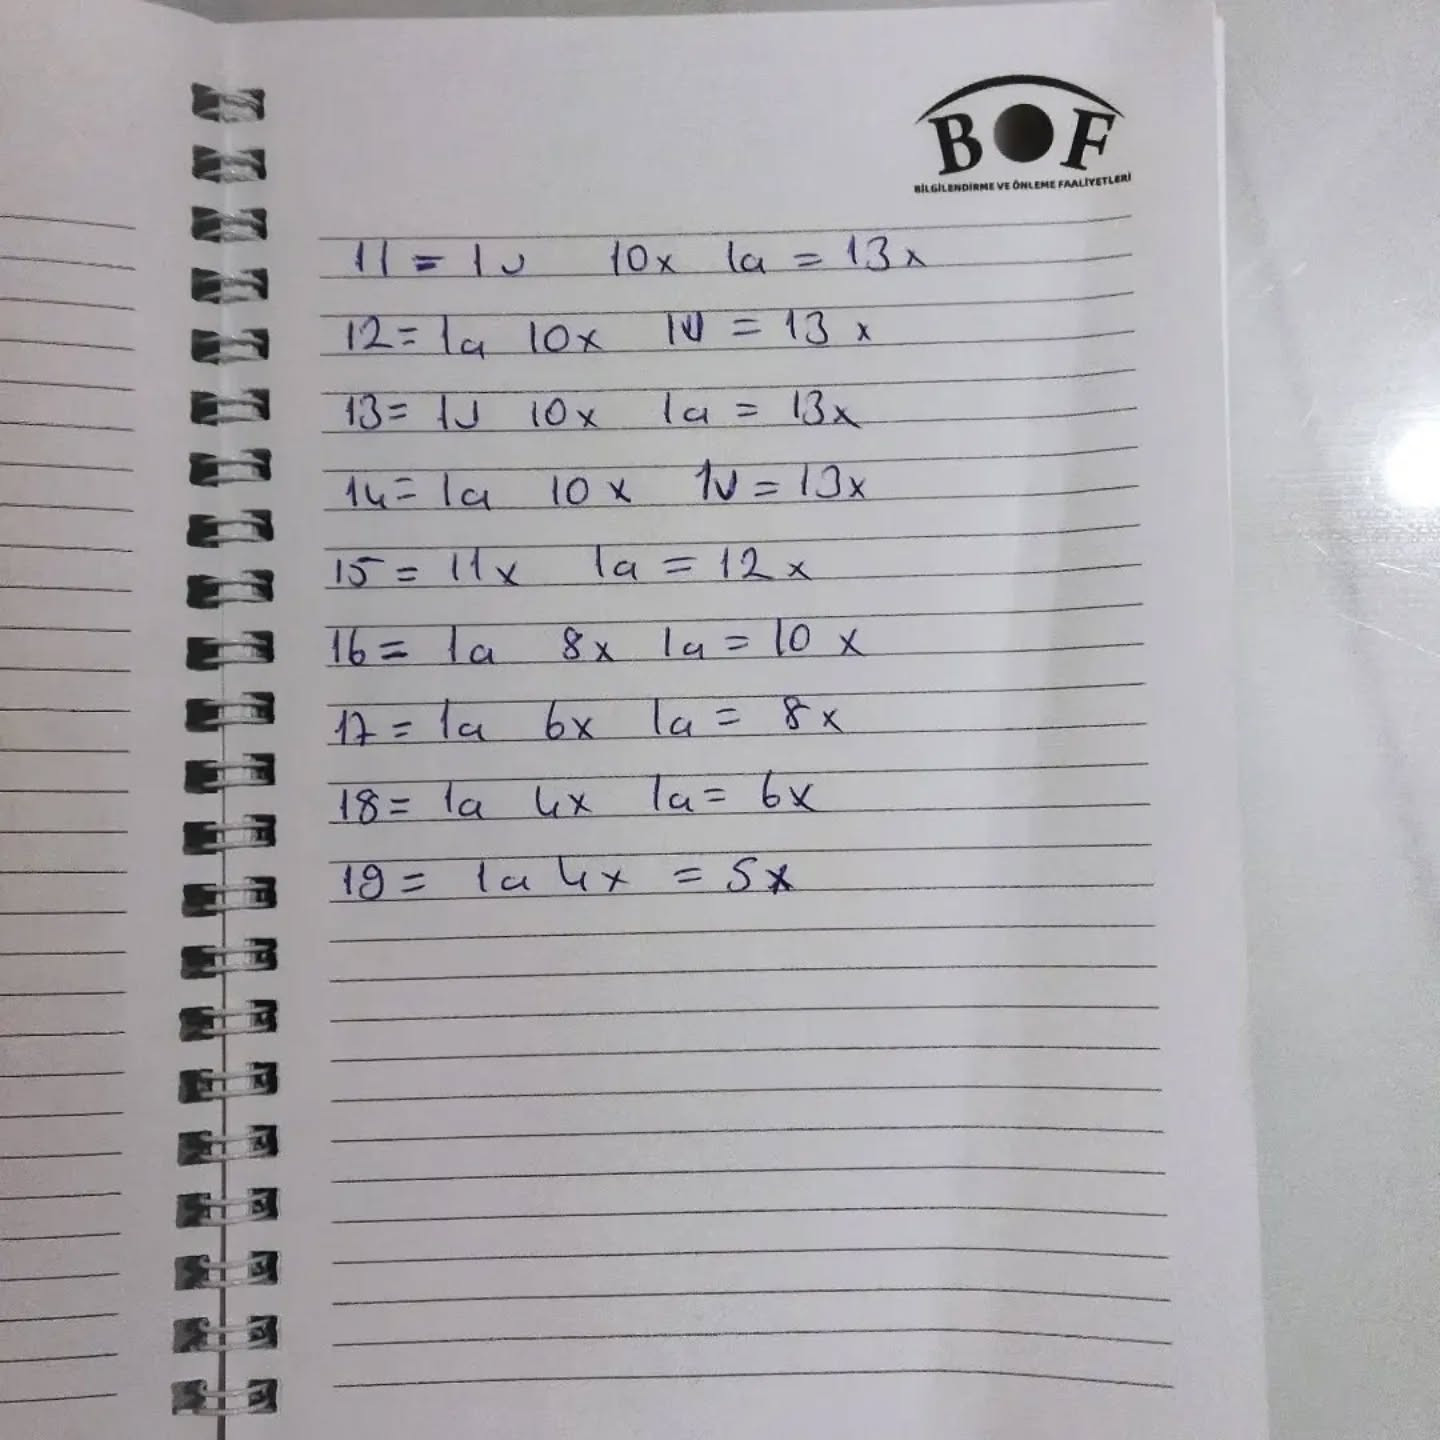 BOF
BİLGİLENDİRME VE ÖNLEME FAALİYETLERİ
11 = 1v 10x 1a = 13x
12 = 1a 10x 1v = 13x
13 = 1v 10x 1a = 13x
14 = 1a 10x 1v = 13x
15 = 11x 1a = 12x
16 = 1a 8x 1a = 10x
17 = 1a 6x 1a = 8x
18 = 1a 4x 1a = 6x
19 = 1a 4x = 5x